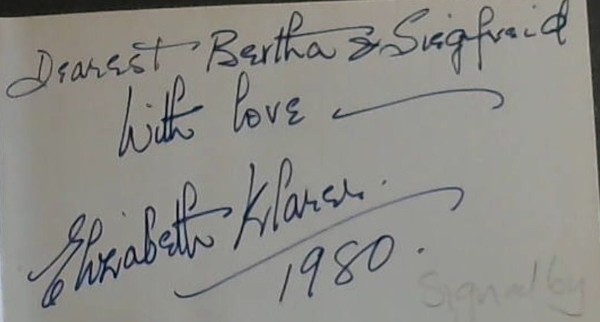 Dearest Bertha & Siegfreid
With love
Elizabeth Klarer.
1980.
Signed by